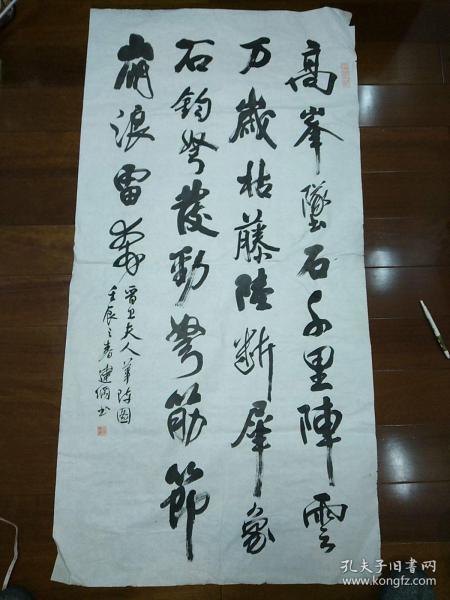 高峯墜石千里陣雲
万歲枯藤陸断犀象
石鈞弩發勁弩筋節
崩浪雷奔
晋卫夫人筆阵図
壬辰之春建书
孔夫子旧书网
www.kongfz.com